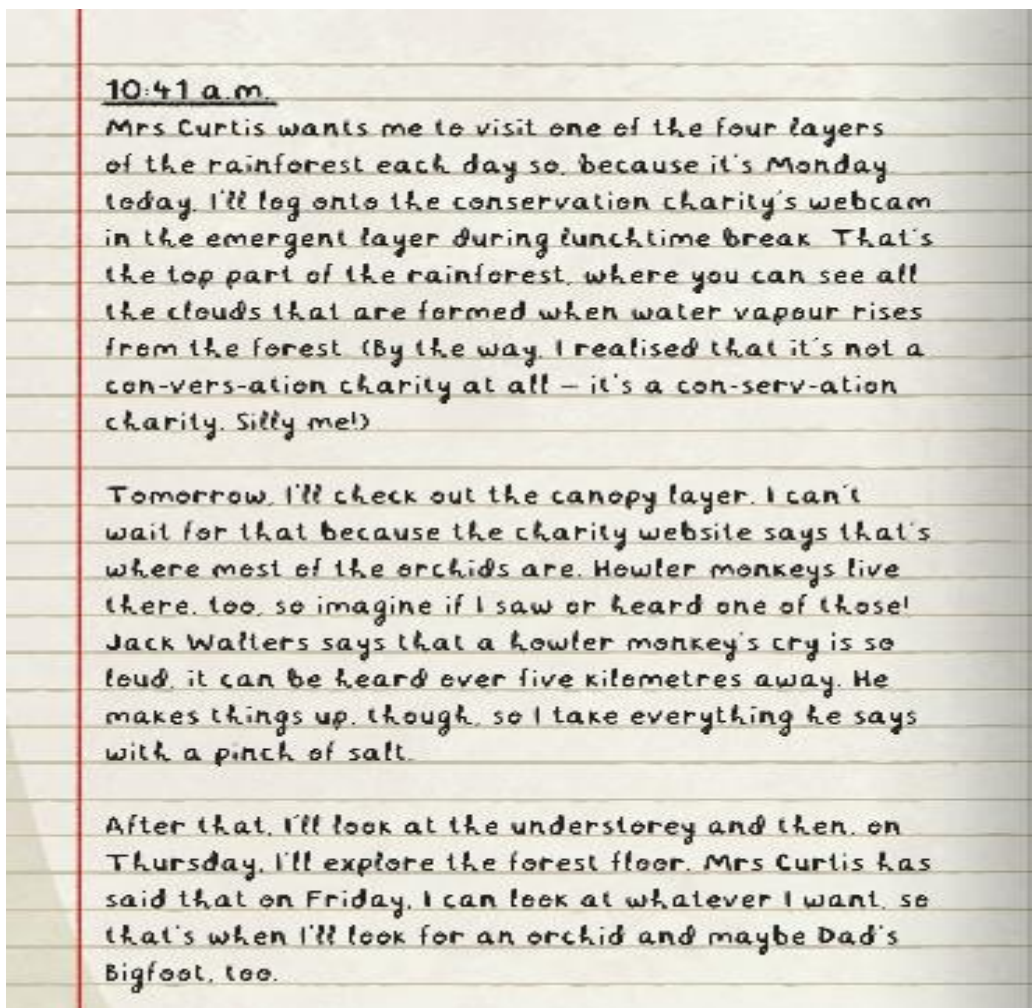 10:41 a.m.
Mrs Curtis wants me to visit one of the four layers
of the rainforest each day so, because it's Monday
today, I'll log onto the conservation charity's webcam
in the emergent layer during lunchtime break. That's
the top part of the rainforest, where you can see all
the clouds that are formed when water vapour rises
from the forest. (By the way, I realised that it's not a
con-vers-ation charity at all – it's a con-serv-ation
charity. Silly me!)
Tomorrow, I'll check out the canopy layer. I can't
wait for that because the charity website says that's
where most of the orchids are. Howler monkeys live
there, too, so imagine if I saw or heard one of those!
Jack Walters says that a howler monkey's cry is so
loud, it can be heard over five kilometres away. He
makes things up, though, so I take everything he says
with a pinch of salt.
After that, I'll look at the understorey and then, on
Thursday, I'll explore the forest floor. Mrs Curtis has
said that on Friday, I can look at whatever I want, so
that's when I'll look for an orchid and maybe Dad's
Bigfoot, too.